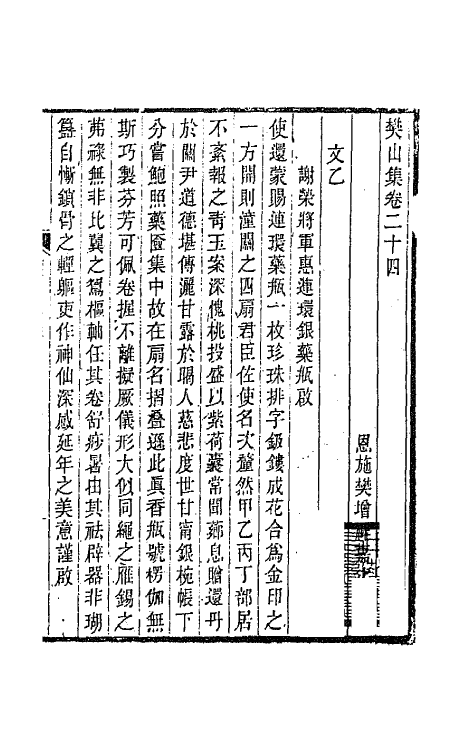 樊山集卷二十四
恩施樊增祥
文乙
謝榮將軍惠連環銀藥瓶啟
使還蒙賜連環藥瓶一枚珍珠排字鈒鏤成花合爲金印之
一方開則潼關之四扇君臣佐使名次釐然甲乙丙丁部居
不紊報之靑玉案深傀桃投盛以紫荷囊常聞薌息贈還丹
於關尹道德堪傳灑甘露於暍人慈悲度世甘甯銀椀帳下
分嘗鮑照藥匳集中故在扇名摺疊遜此眞香瓶號楞伽無
斯巧製芬芳可佩卷握不離擬厥儀形大似同繩之雁錫之
茀祿無非比翼之鶼樞軸任其卷舒痧暑由其祛辟器非瑚
簋自慚鎖骨之輕軀吏作神仙深感延年之美意謹啟